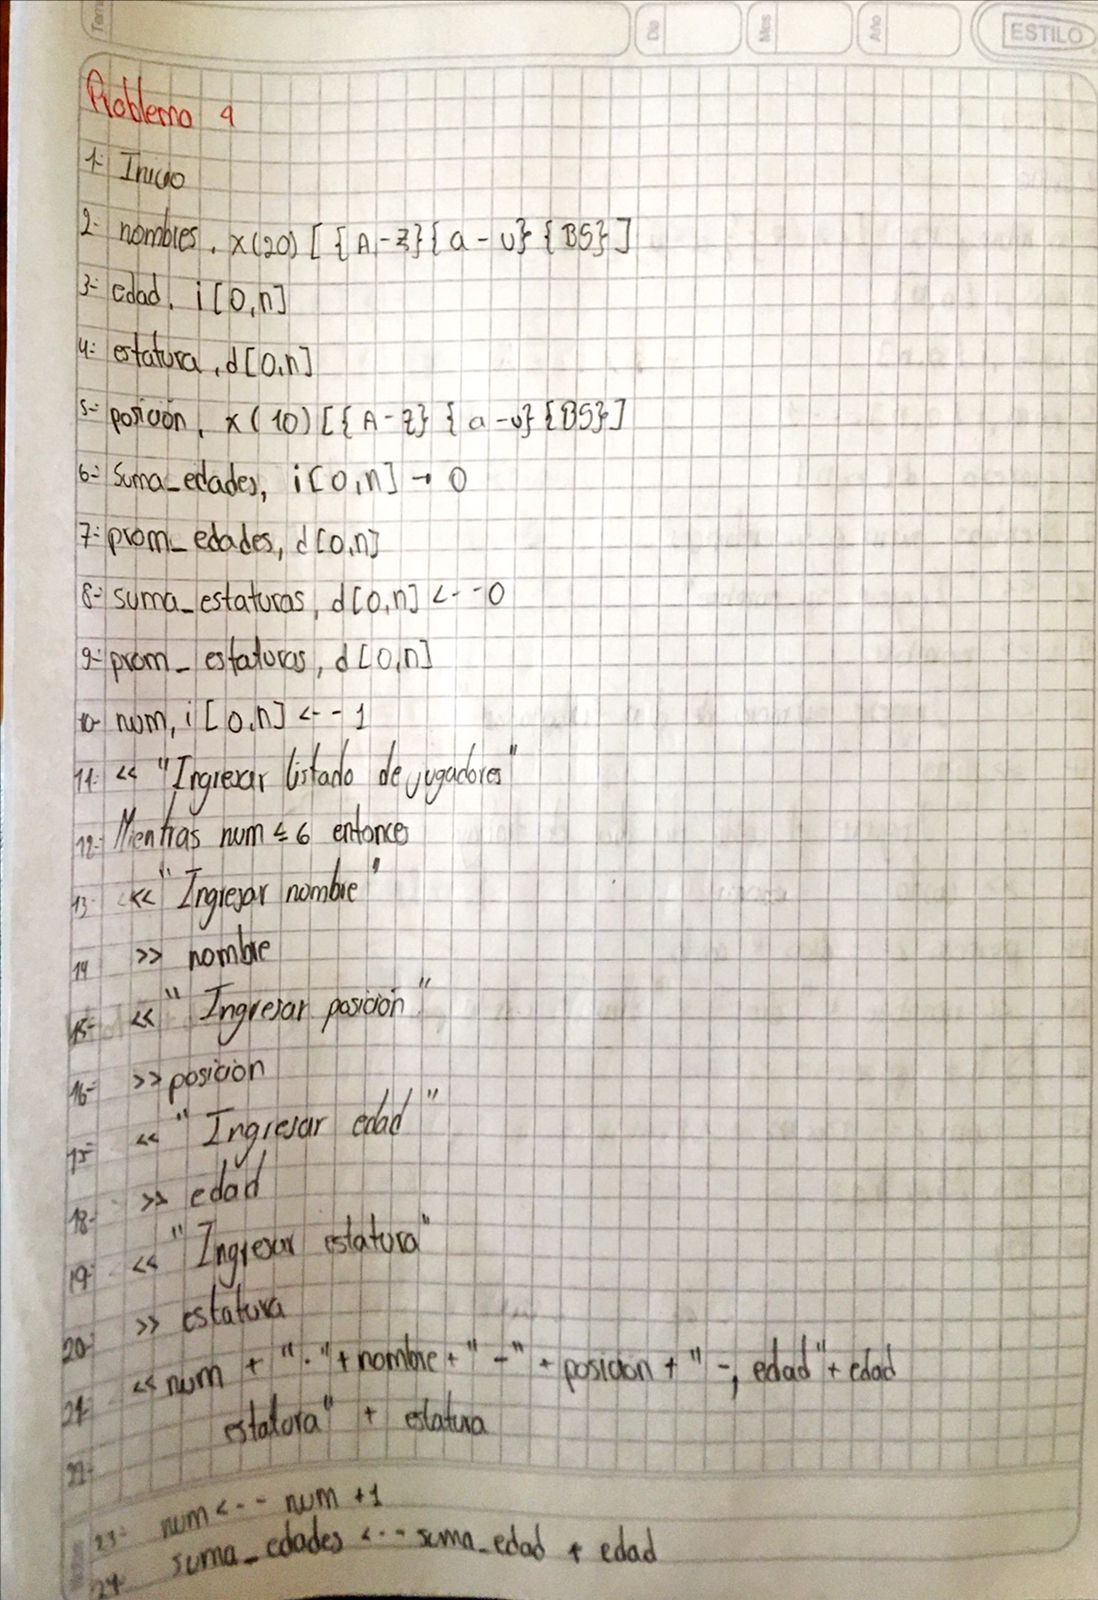 Tema
Día
Mes
Año
ESTILO
Problema 4
1- Inicio
2- nombres, x(20) [{A-Z}{a-u}{BS}]
3- edad, i[0,n]
4- estatura, d[0,n]
5- posición, x(10)[{A-Z} {a-u}{BS}]
6- Suma_edades, i[0,n] → 0
7- prom_edades, d[0,n]
8- suma_estaturas, d[0,n] <--0
9- prom_estaturas, d[0,n]
10- num, i[0,n] <--1
11- << "Ingresar listado de jugadores"
12- Mientras num ≤ 6 entonces
13 << "Ingresar nombre"
14 >> nombre
15- << "Ingresar posición"
16- >> posicion
17- << "Ingresar edad"
18- >> edad
19- << "Ingresar estatura"
20- >> estatura
21- << num + "." + nombre + "-" + posicion + "-, edad" + edad
estatura" + estatura
22-
23- num <-- num +1
24- suma_edades <-- suma_edad + edad